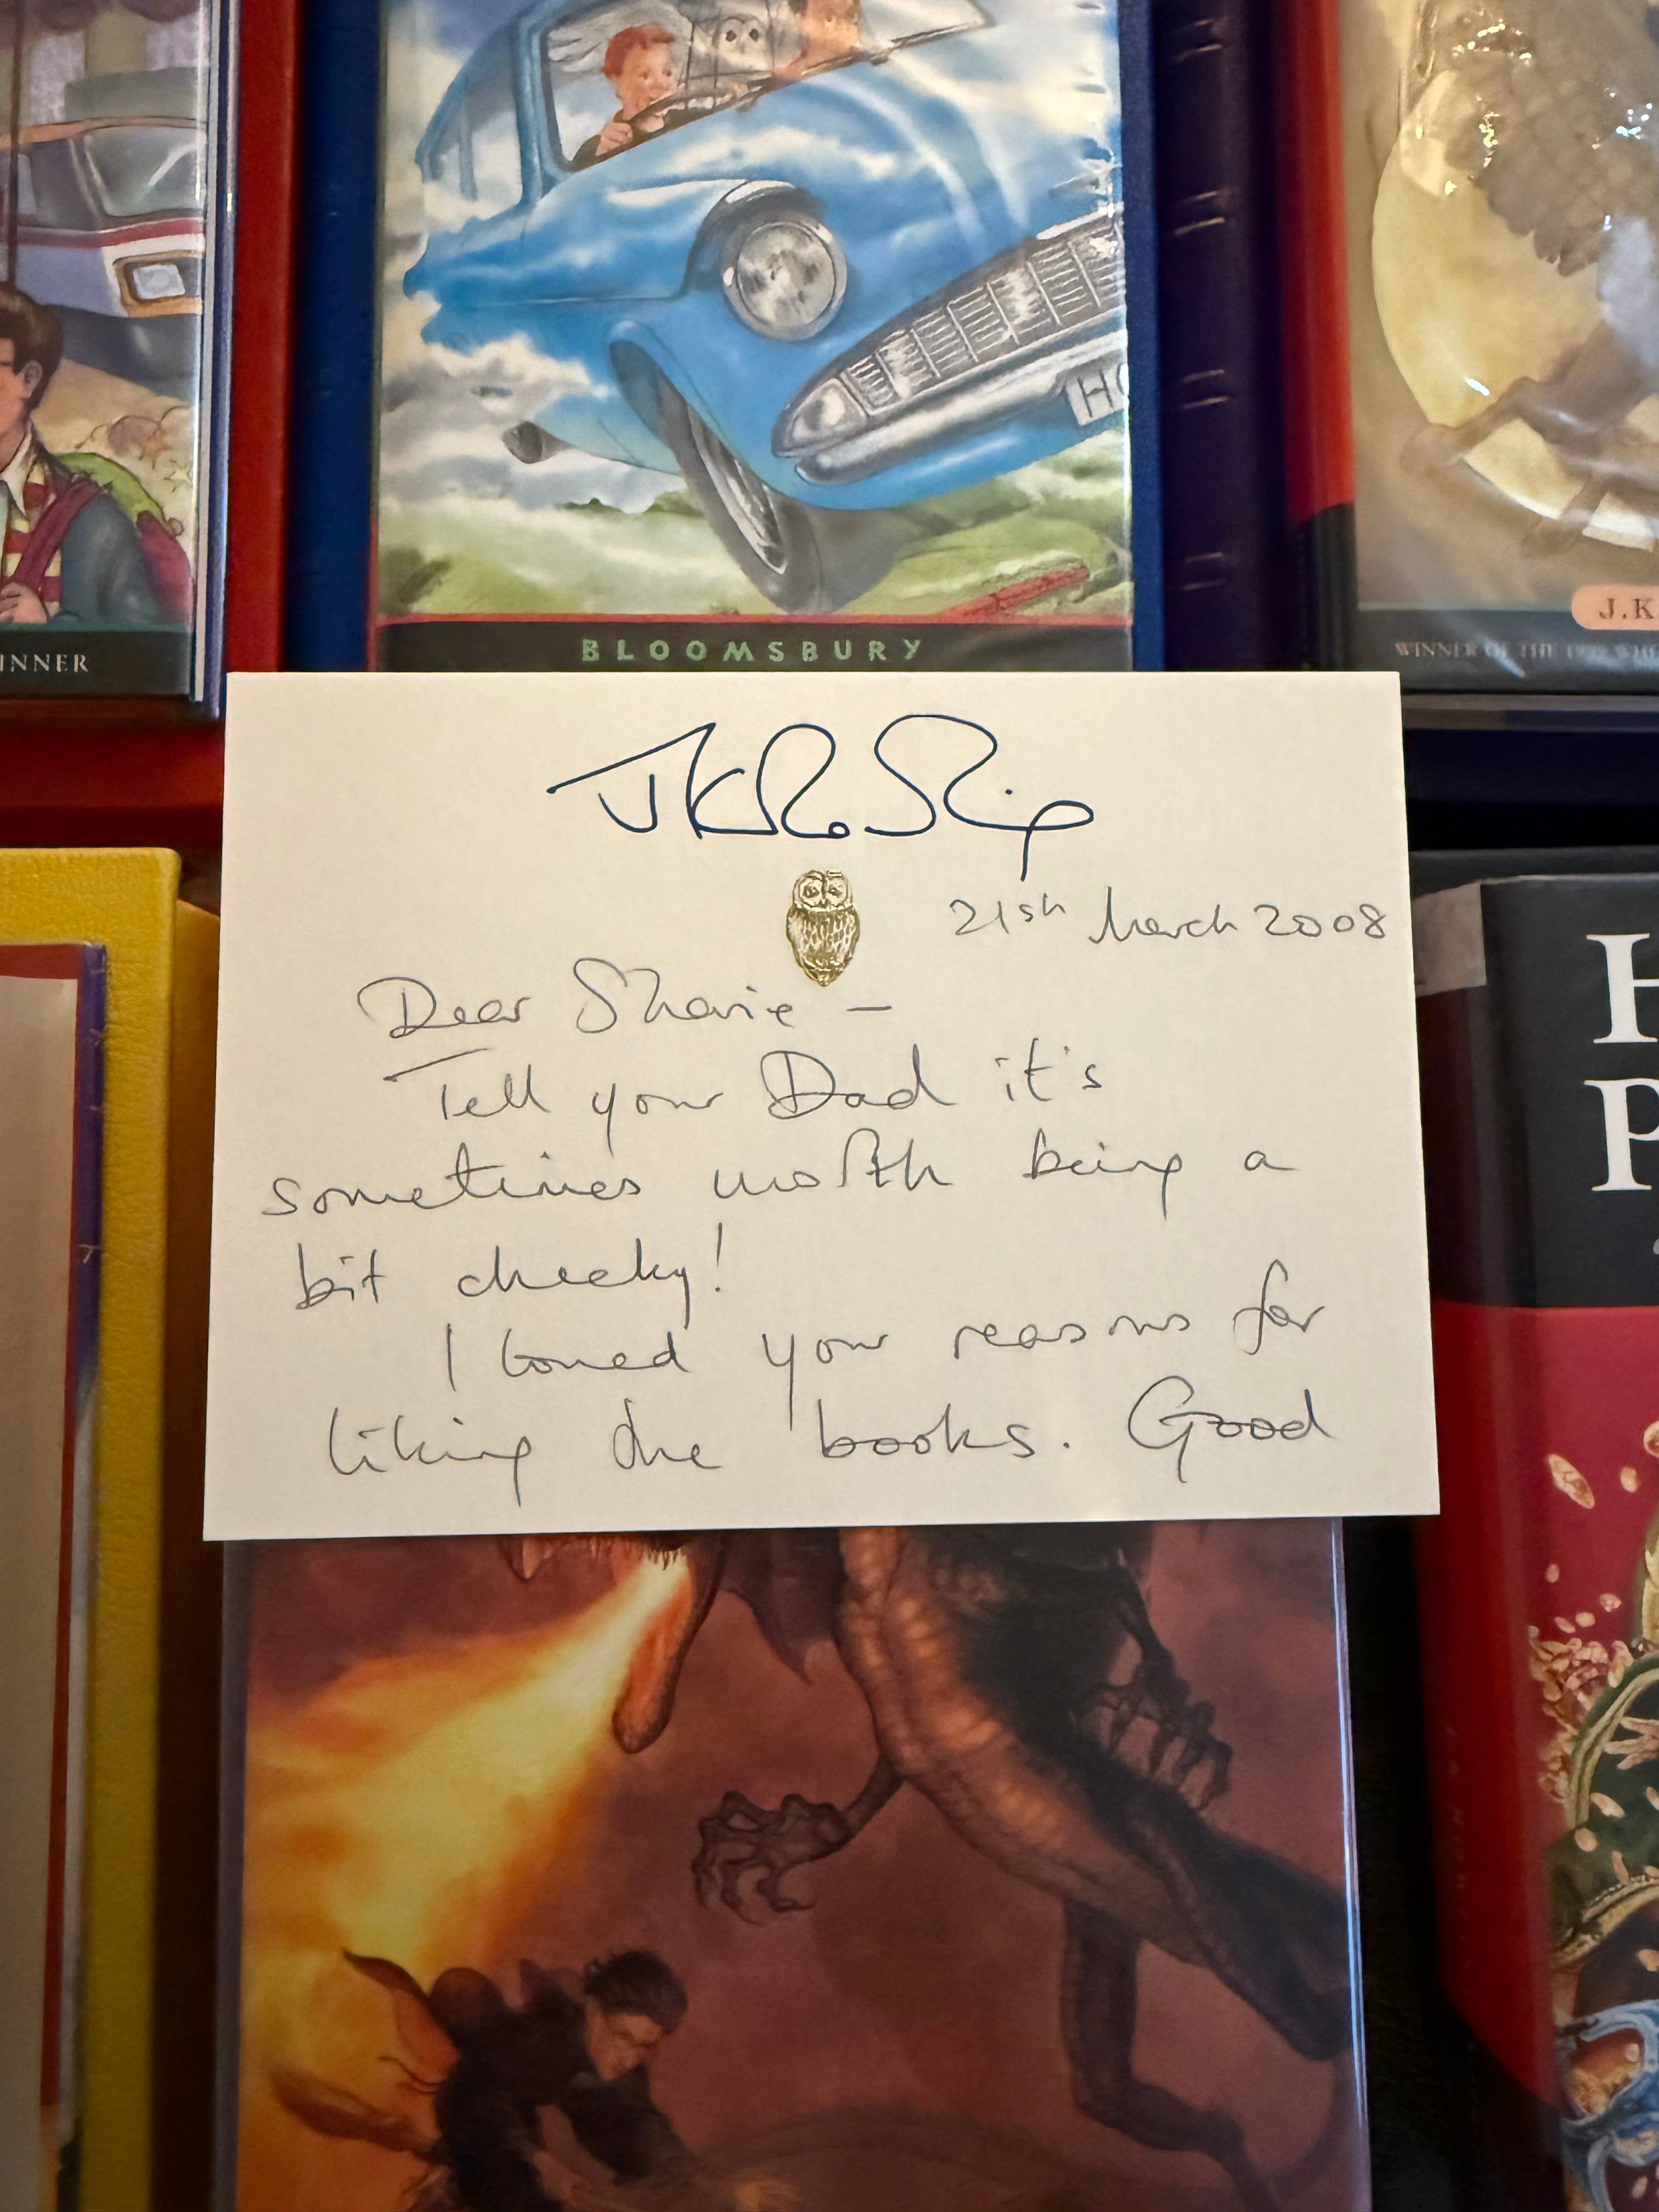 HO
INNER
BLOOMSBURY
J.K
WINNER OF THE 1999 WHI
21st March 2008
Dear Sharie –
Tell your Dad it's
sometimes worth being a
bit cheeky!
I loved your reasons for
liking the books. Good
H
P